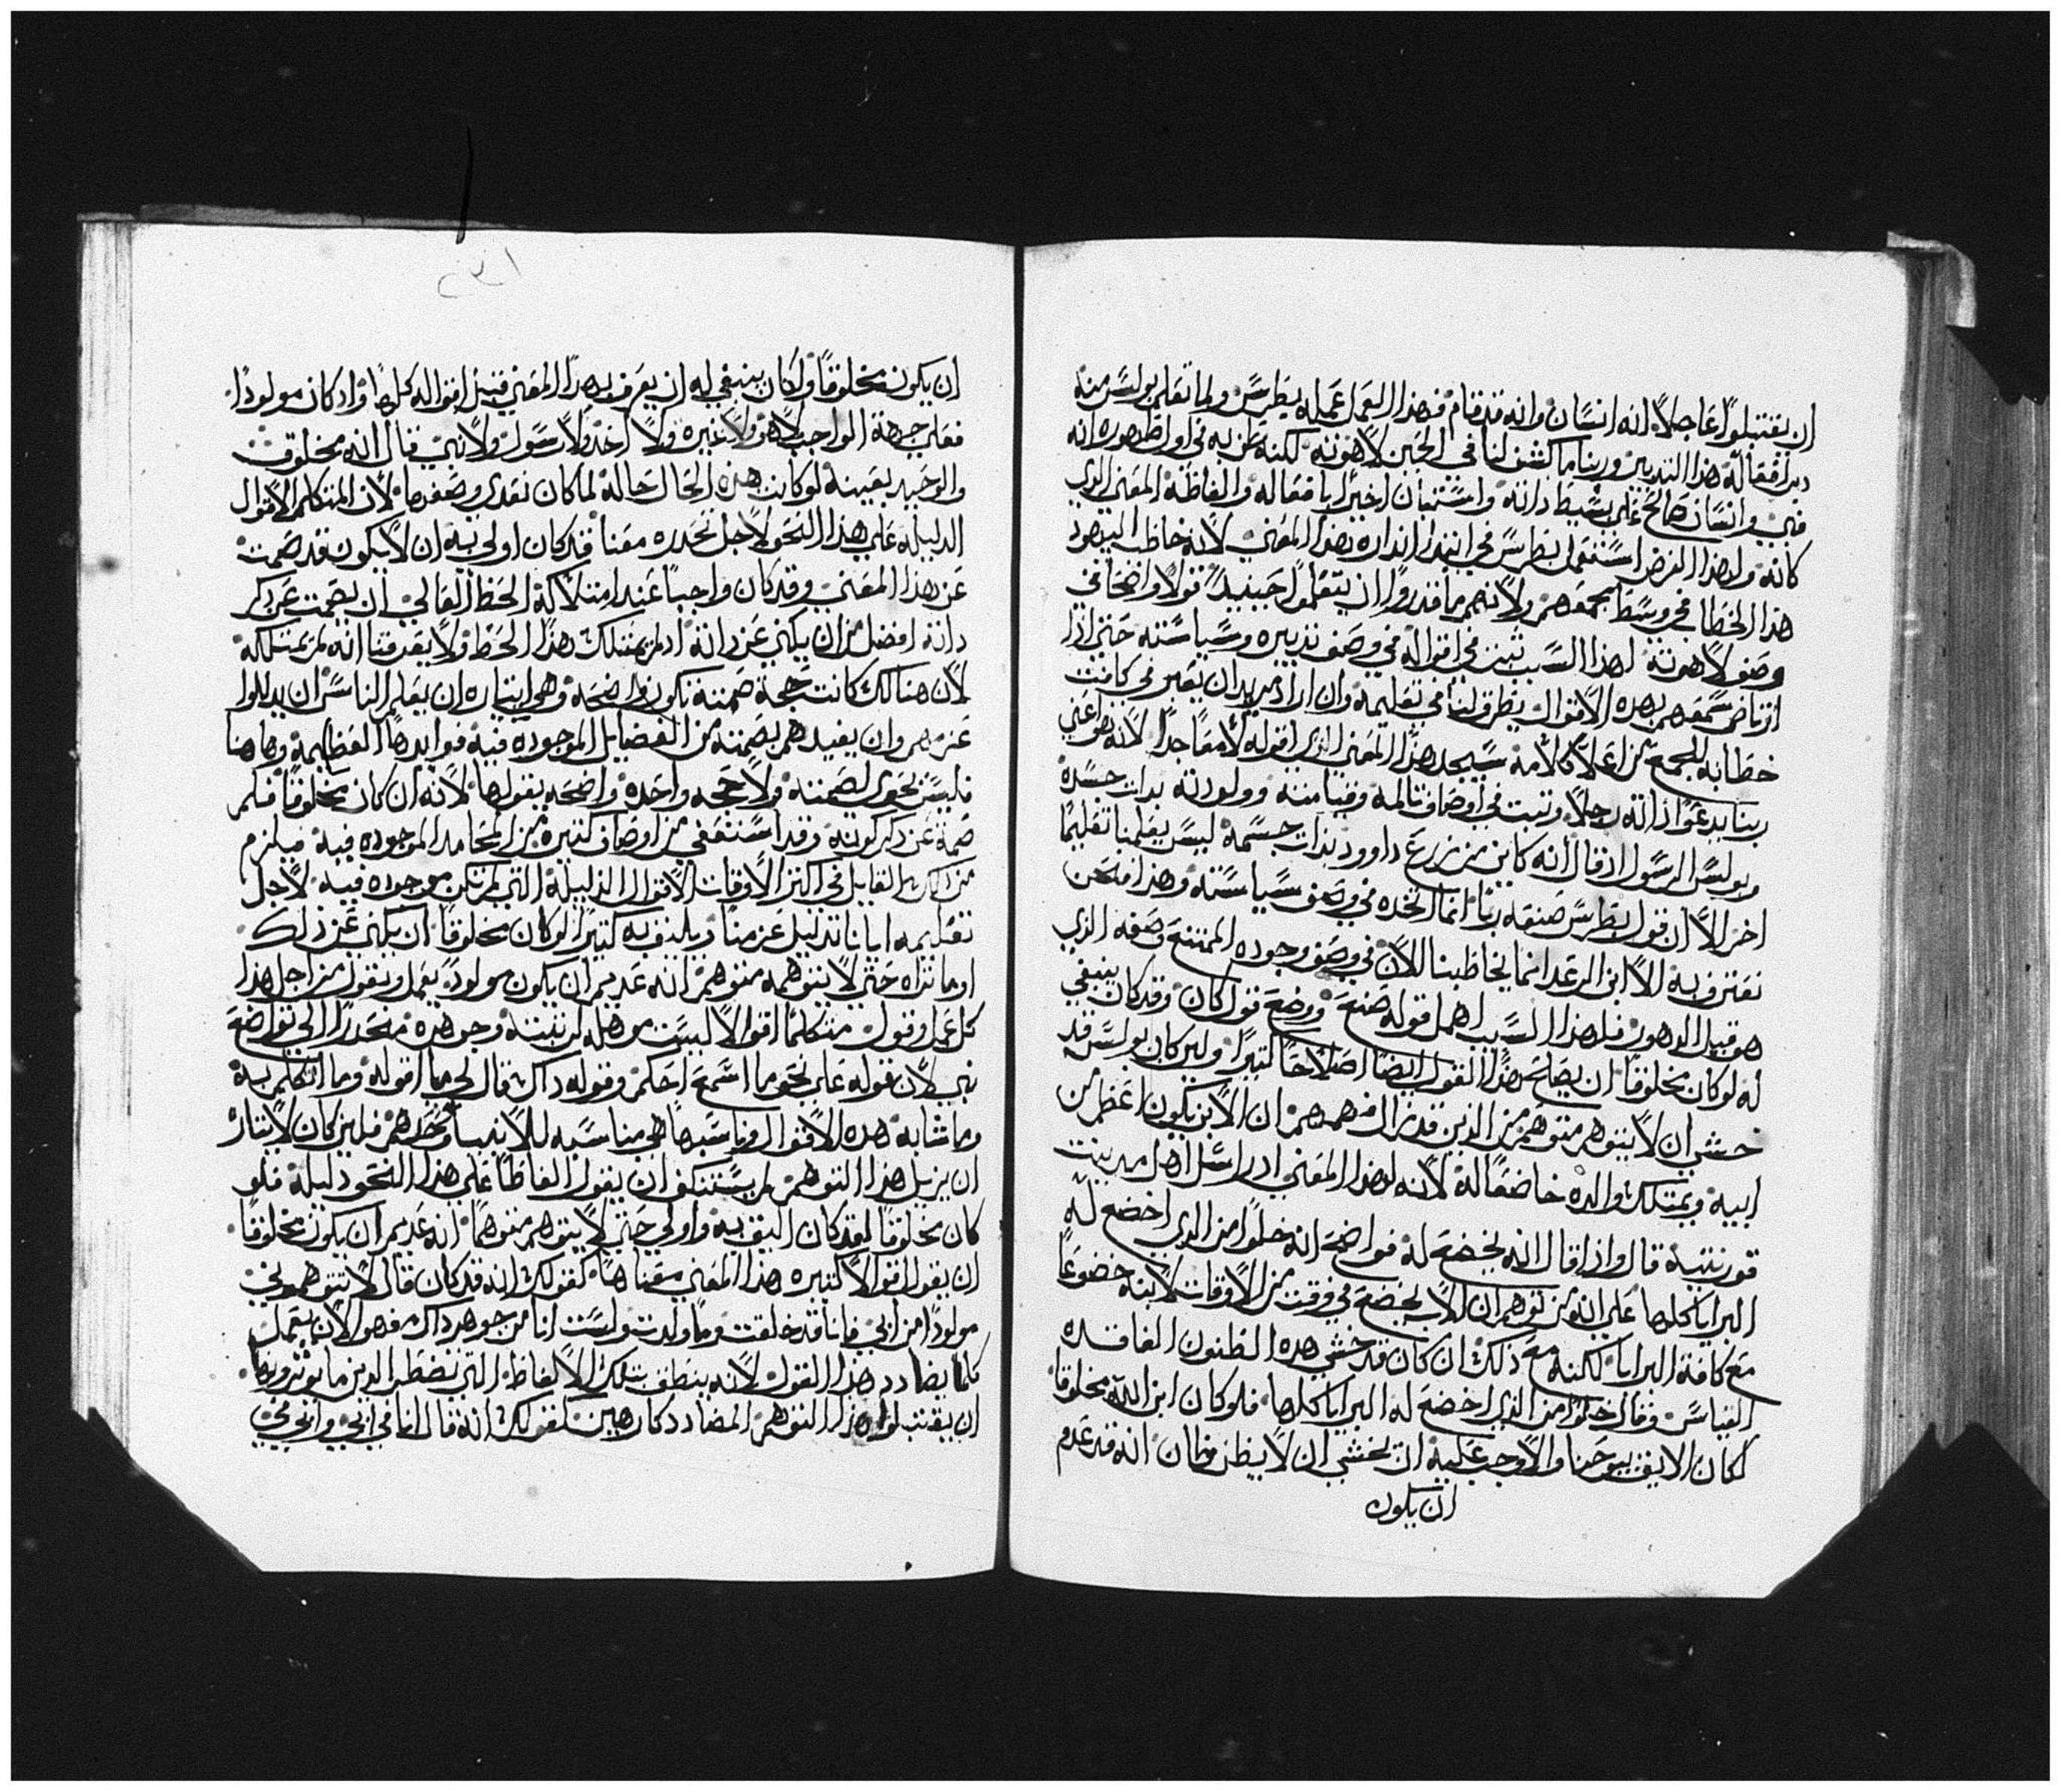 ان يقتبلوا عاجلاً انه انسان وانه قد قام فهذا العمل عمله بطرس ولما تعلم بولس منه
دبر افعاله هذا التدبير وربنا ما كشف لنا في الحين لاهوته لكنه ظن به في اول ظهوره انه
نبي وانسان صالح على بسيط ذاته واستبان اخيراً بافعاله والفاظه المعنى الذي
كانه ولهذا الغرض استعمل بطرس في ابتدا انذاره بهذا المعنى لانه خاطب اليهود
هذا الخطاب في وسط مجمعهم ولانهم ما قدروا ان يتعلموا حينيذ قولاً واضحاً في
وصف لاهوته لهذا السبب ثبت في اقواله في وصف تدبيره وسياسته حتى اذا
ارتاض سمعهم بهذه الاقوال يتطرق لنا في تعليمه وان اراد مريد ان يعبر في كافة
خطابه للجمع من اعلا كلامه سيجد هذا المعنى الذي اقوله لامعاً جداً لانه هو اعني
ربنا يدعوا ذاته رجلاً ويثبت في اوصاف تالمه وقيامته وولودته بذات جسده
وبولس الرسول اذ قال انه كاين من زرع داوود بذات جسمه ليس يعلمنا تعليماً
اخر الا ان قول بطرس صنعه رباً انما اتخذه في وصف سياسته وهذا فنحن
نعترف به الا ابن الرعد انما يخاطبنا الان في وصف وجوده الممتنع وصفه الذي
هو قبل الدهور فلهذا السبب اهمل قوله صنع ووضع قول كان وقد كان ينبغي
له لو كان مخلوقاً ان يصلح هذا القول ايضاً اصلاحاً كثيراً ولين كان بولس قد
خشي ان لا يتوهم متوهم من الذين قد زال فهمهم ان الابن يكون اعظم من
ابيه ويمتلك والده خاضعاً له لانه لهذا المعنى اذ راسل اهل مدينة
قورنتية قال واذا قال انه يخضع له فواضح انه خلوا من الذي اخضع له
البرايا كلها على انه من توهم ان الاب يخضع في وقت من الاوقات لابنه خضوعاً
مع كافة البرايا لكنه مع ذلك ان كان قد خشي هذه الظنون الفاقده
القياس وقال خلوا من الذي اخضع له البرايا كلها فلو كان ابن الله مخلوقاً
لكان الايق بيوحنا والاوجب عليه ان يخشي ان لا يظن ظان انه قد عدم
ان يكون
٢٣١
ان يكون مخلوقاً ولكان ينبغي له ان يعرف بهذا المعنى قبل اقواله كلها واذ كان مولوداً
فعلى جهة الواجب لا هو ولا غيره ولا احد ولا رسول ولا نبي قال انه مخلوق
والوحيد بعينه لو كانت هذه الحال حاله لما كان تعدى وصفها لان المتكلم الاقوال
الذليلة على هذا النحو لاجل تحدره معنا قد كان اولى به ان لا يكون قد صمت
عن هذا المعنى وقد كان واجباً عند امتلاكه الحظ العالي ان يصمت عن ذكر
ذاته افضل من ان يكني عن ذاته اذ لم يمتلك هذا الحظ ولا يعرفنا انه لم يمتلكه
لان هنالك كانت حجة صمته تكون واضحه وهي ايثاره ان يعلم الناس ان يذللوا
عزمهم وان يفيدهم بصمته من الفضايل الموجوده فيه فوايدها العظيمة وهاهنا
فليس تحوى لصمته ولا حجه واحده واضحه يقولها لانه ان كان مخلوقاً فلم
صمت عن ذكر كونه وقد استعفى من اوصاف كثيره من المحامد الموجوده فيه فيلزم
من ذاك القايل في اكثر الاوقات الاقوال الذليلة التي لم تكن موجوده فيه لاجل
تعليمه ايانا تذليل عزمنا ويليق به كثيراً لو كان مخلوقاً ان يكني عن ذلك
اوما تراه حتى لا يتوهمه متوهم انه عديم ان يكون مولوداً يعمل ويقول من اجل هذا
كل عمل وقول متكلماً اقوالاً ليست موهله لرتبته وجوهره منحدراً الى تواضع
نبي لان قوله على نحو ما اسمع احكم وقوله ذاك قال لي ما اقوله وما اتكلم به
وما شابه هذه الاقوال وناسبها هي مناسبه للانبيا وحدهم فلين كان لايثاره
ان يزيل هذا التوهم لم يستنكف ان يقول الفاظاً على هذا النحو ذليلة فلو
كان مخلوقاً لقد كان اليق به واولى حتى لا يتوهم متوهماً انه عديم ان يكون مخلوقاً
ان يقول اقوالاً كثيره هذا المعنى معناها كقولك انه قد كان قال لا تتوهموني
مولوداً من ابي فانا قد خلقت وما ولدت ولست انا من جوهر ذاك فهو الان يعمل
كلما يضادد هذا القول لانه ينطق بتلك الالفاظ التي تضطر الذين ما يوثرونها
ان يقتبلوا هذا التوهم المضادد كارهين كقولك انه قال انا في ابي وابي في